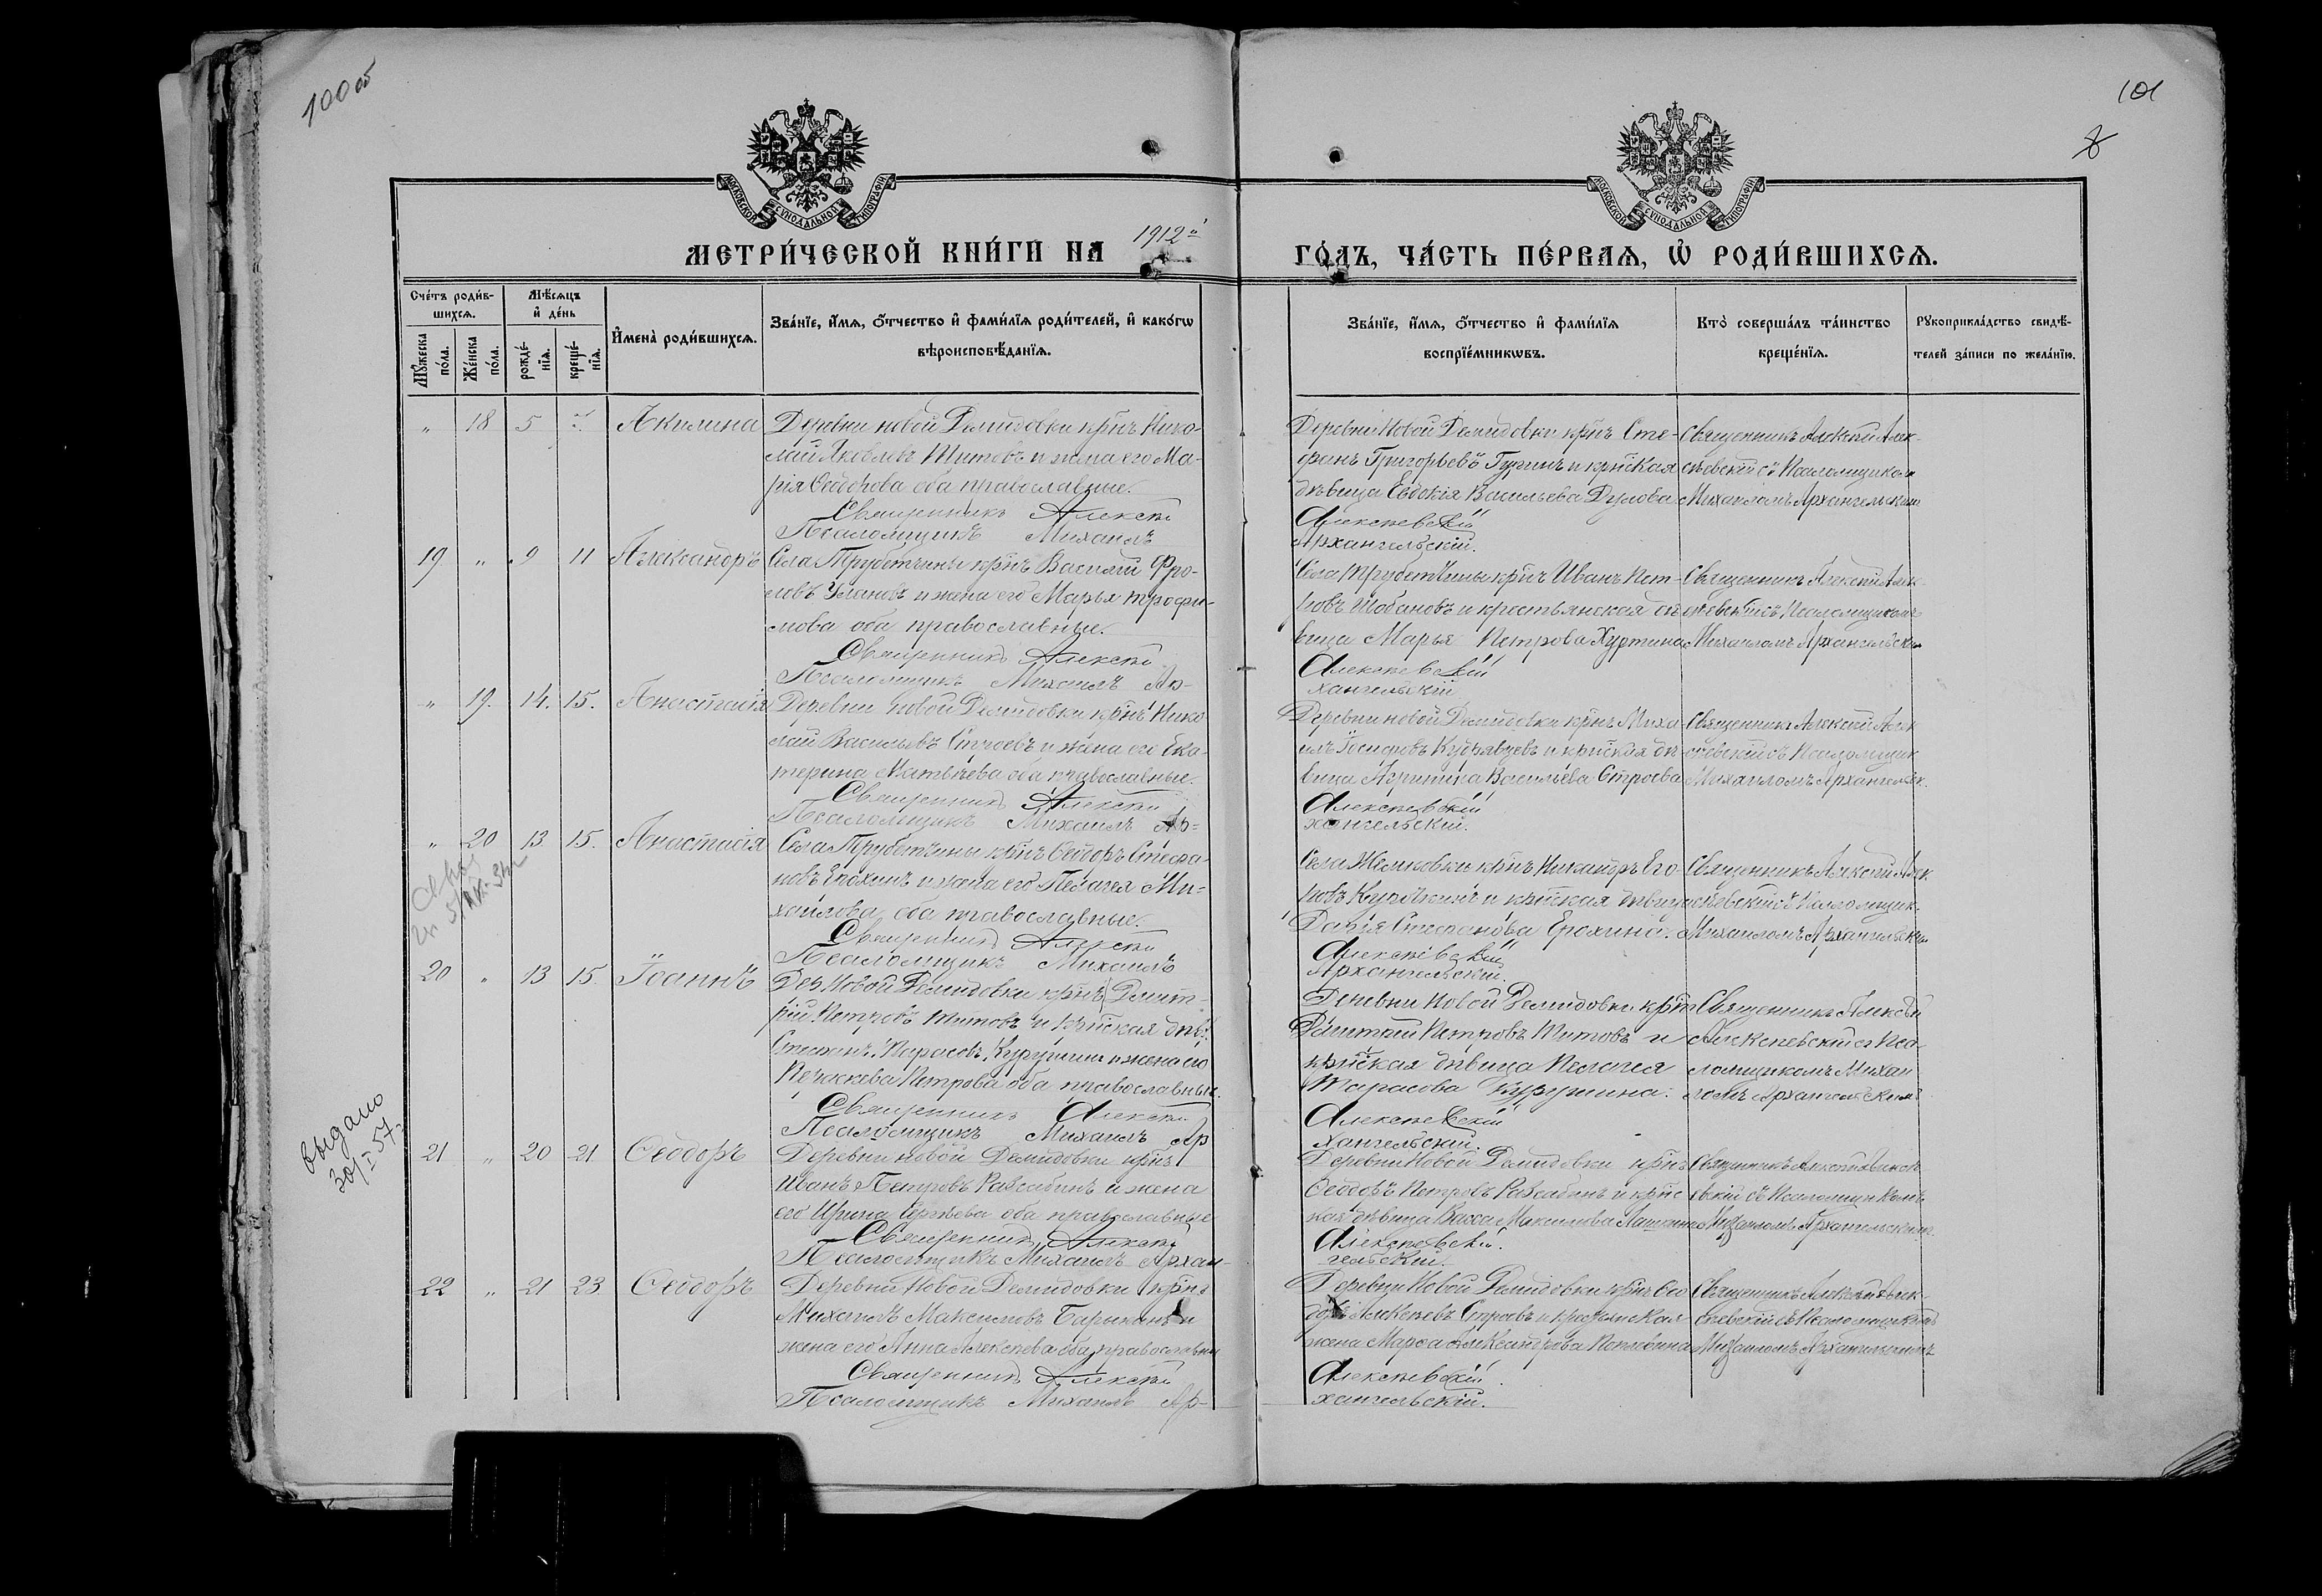 100 об
101
8
МОСКОВСКОЙ СѴНОДАЛЬНОЙ ТИПОГРАФІИ
МОСКОВСКОЙ СѴНОДАЛЬНОЙ ТИПОГРАФІИ
МЕТРИ́ЧЕСКОЙ КНИ́ГИ НА 1912й
ГО́ДЪ, ЧА́СТЬ ПЕ́РВАѦ, Ѽ РОДИ́ВШИХСѦ.
Сче́тъ роди́в-
шихсѧ.
Мꙋ́жеска по́ла.
Же́нска по́ла.
Мѣ́сѧцъ и҆ де́нь
рожде́-
нїѧ.
креще́-
нїѧ.
И҆мена̀ роди́вшихсѧ.
Зва́нїе, и҆́мѧ, ѻ҆́тчество и҆ фами́лїѧ роди́телей, и҆ како́гѡ
вѣроисповѣ́данїѧ.
Зва́нїе, и҆́мѧ, ѻ҆́тчество и҆ фами́лїѧ
воспрїе́мникѡвъ.
Кто̀ соверша́лъ та́инство
креще́нїѧ.
Рꙋкоприкла́дство свидѣ́-
телей за́писи по жела́нїю.
" 18 5 Акилина
Деревни новой Демидовки крнъ Нико-
лай Яковлевъ Титовъ и жена его Ма-
рія Ѳеодорова оба православные.
Священникъ Алексѣй
Псаломщикъ Михаилъ
Деревни Новой Демидовки крнъ Сте-
фанъ Григорьевъ и крнская
дѣвица Евдокія Васильева Дулова
Алексѣевскій
Архангельскій.
Священникъ Алексѣй Алек-
сѣевскій съ Псаломщикомъ
Михаиломъ Архангельскимъ
19 " 9 11 Александръ
Села Трубетчины крнъ Василій Фро-
ловъ Улановъ и жена его Марья Трофи-
мова оба православные.
Священникъ Алексѣй
Псаломщикъ Михаилъ Ар-
Села Трубетчины крнъ Иванъ Пет-
ровъ Шобановъ и крестьянская дѣ
вица Марья Петрова Хуртина
Алексѣевскій
хангельскій
Священникъ Алексѣй Алек-
сѣевскій съ Псаломщикомъ
Михаиломъ Архангельски
" 19. 14. 15. Анастасія
Деревни новой Демидовки крнъ Нико
лай Васильевъ Строевъ и жена его Ека-
терина Матвѣева оба православные.
Священникъ Алексѣй
Псаломщикъ Михаилъ Ар-
Деревни новой Демидовки крнъ Миха
илъ Іосифовъ Кудрявцевъ и крнская дѣ
вица Агрипина Васильева Строева
Алексѣевскій
хангельскій.
Священникъ Алексѣй Алек
сѣевскій съ Псаломщик
Михаиломъ Архангельск.
" 20 13. 15. Анастасія
Села Трубетчины крнъ Ѳеодоръ Стефа-
новъ Ерохинъ и жена его Пелагея Ми-
хайлова оба православные.
Священникъ Алексѣй
Псаломщикъ Михаилъ
крнъ Никаноръ Его-
ровъ и крнская дѣвица
Дарья Степанова Ерохина.
Алексѣевскій
Архангельскій.
Священникъ Алексѣй Алек
сѣевскій съ Псаломщик.
Михаиломъ Архангельским
20 " 13 15. Іоаннъ
Дер. Новой Демидовки крнъ Дмит-
рій Петровъ Титовъ и крнская дѣв.
и жена его
Параскева Петрова оба православные.
Священникъ Алексѣй
Псаломщикъ Михаилъ Ар
Деревни Новой Демидовки крн
Дмитрій Петровъ Титовъ и
крнская дѣвица Пелагея
Тарасова
Алексѣевскій
хангельскій.
Священникъ Алексѣй
Алексѣевскій съ Пса-
ломщикомъ Михаи
ломъ Архангельскимъ
выдано
30/I 57 г
21 " 20 21 Ѳеодоръ
Деревни новой Демидовки крнъ
Иванъ Петровъ Разсабинъ и жена
его Ирина Сергѣева оба православные
Священникъ Алексѣй
Псаломщикъ Михаилъ Архан-
Деревни Новой Демидовки крнъ
Ѳеодоръ Петровъ Разсабинъ и крнс
кая дѣвица Васса Максимова
Алексѣевскій.
гельскій.
Священникъ Алексѣй Алексѣ
евскій съ Псаломщикомъ
Михаиломъ Архангельскимъ.
22 " 21 23. Ѳеодоръ
Деревни Новой Демидовки крнъ
Михаилъ Максимовъ Барыкинъ и
жена его Анна Алексѣева оба православны
Священникъ Алексѣй
Псаломщикъ Михаилъ Ар-
Деревни Новой Демидовки крнъ Ѳео
доръ Алексѣевъ Строевъ и крестьянская
жена Марѳа Александрова
Алексѣевскій.
хангельскій.
Священникъ Алексѣй Алек-
сѣевскій съ Псаломщикомъ
Михаиломъ Архангельскимъ